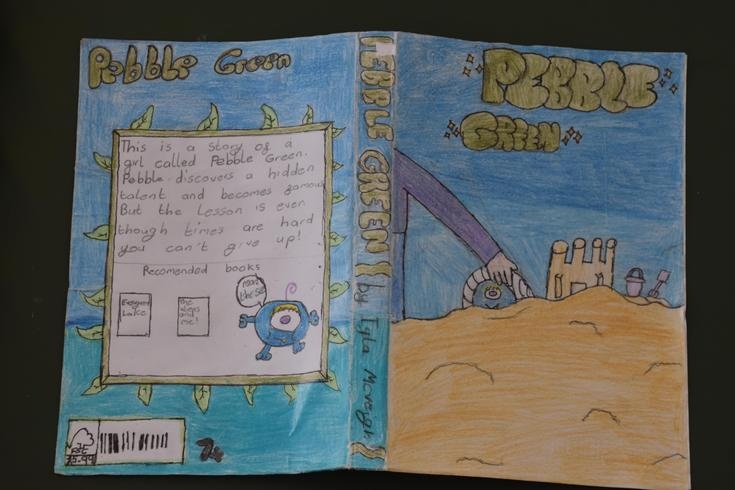 Pebble Green
This is a story of a
girl called Pebble Green.
Pebble discovers a hidden
talent and becomes famous
But the Lesson is even
though times are hard
you can't give up!
Recomended books
Emerald
Lake
and
me!
PEBBLE GREEN! by Tyla Mcveigh
PEBBLE
GREEN